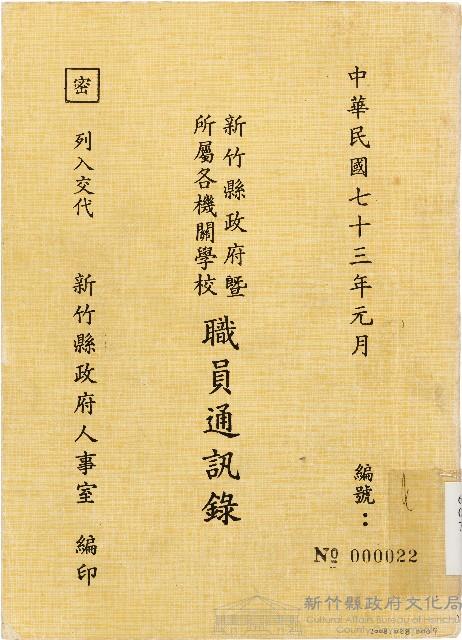 中華民國七十三年元月
編號：
№ 000022
新竹縣政府暨
所屬各機關學校
職員通訊錄
密
列入交代
新竹縣政府人事室 編印
新竹縣政府文化局
Cultural Affairs Bureau of Hsinchu
County